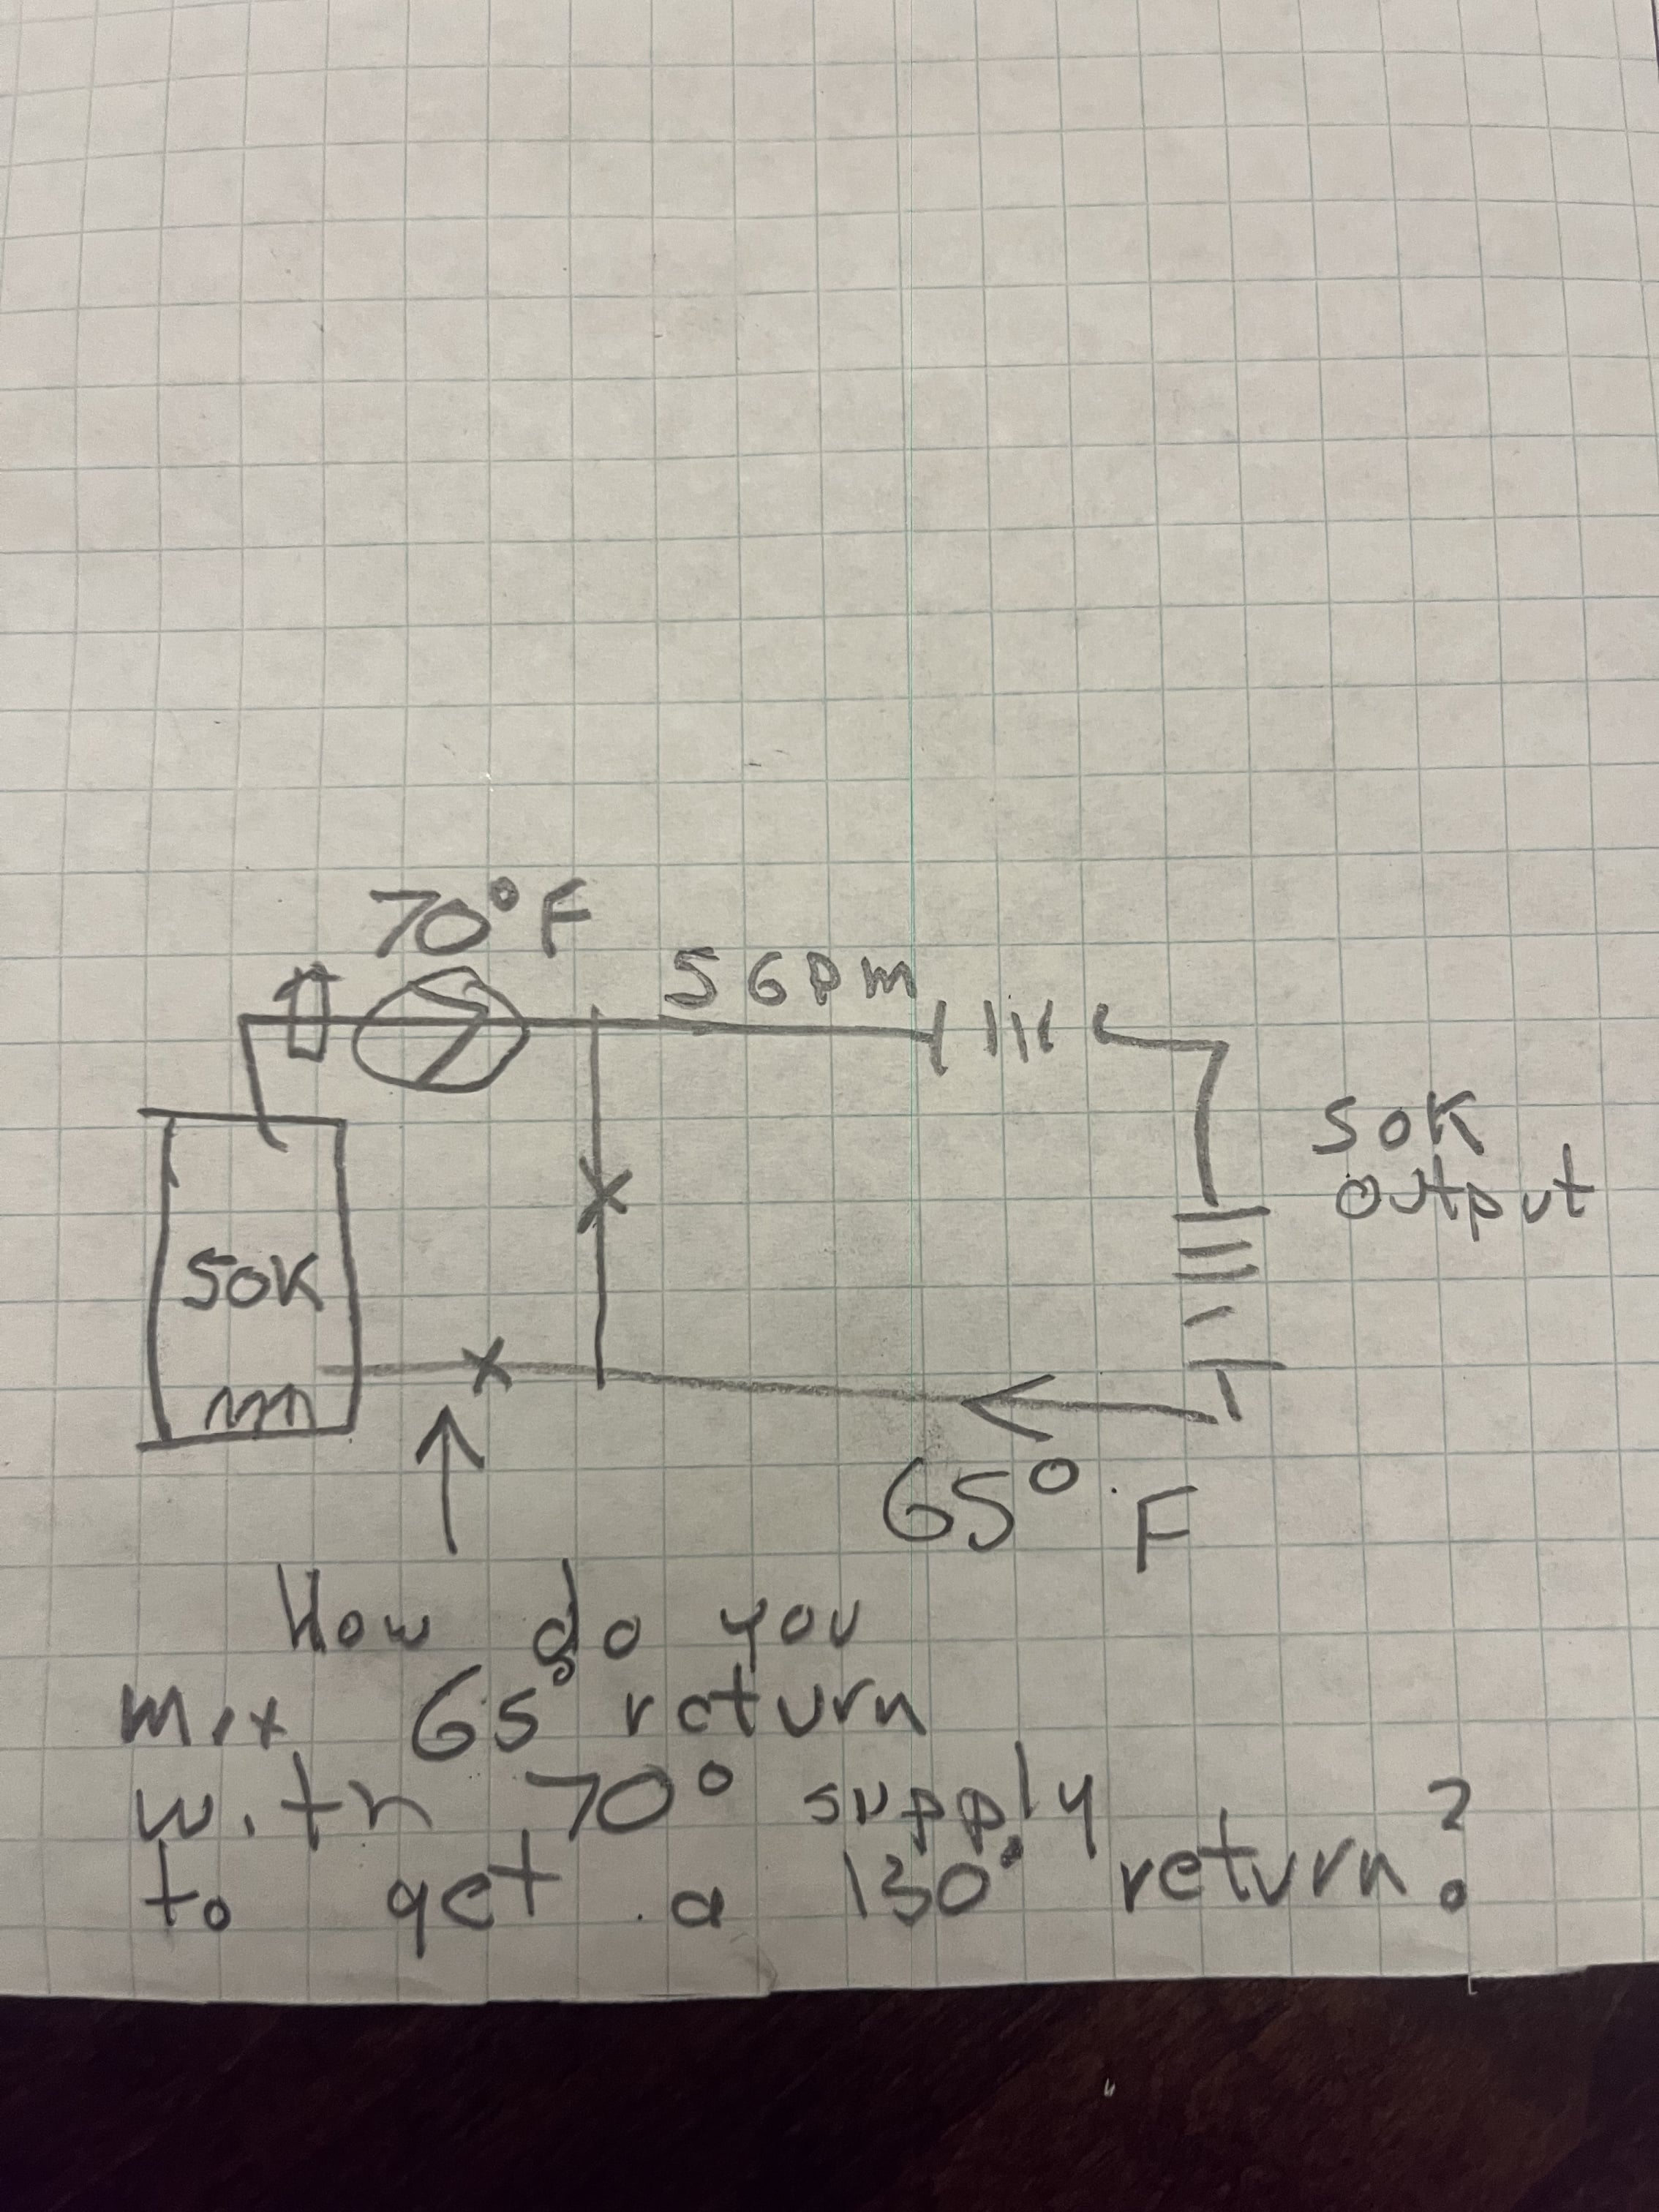 70°F
5 GPM
50K
output
50K
65° F
How do you
mix 65° return
with 70° supply
to get a 130° return?